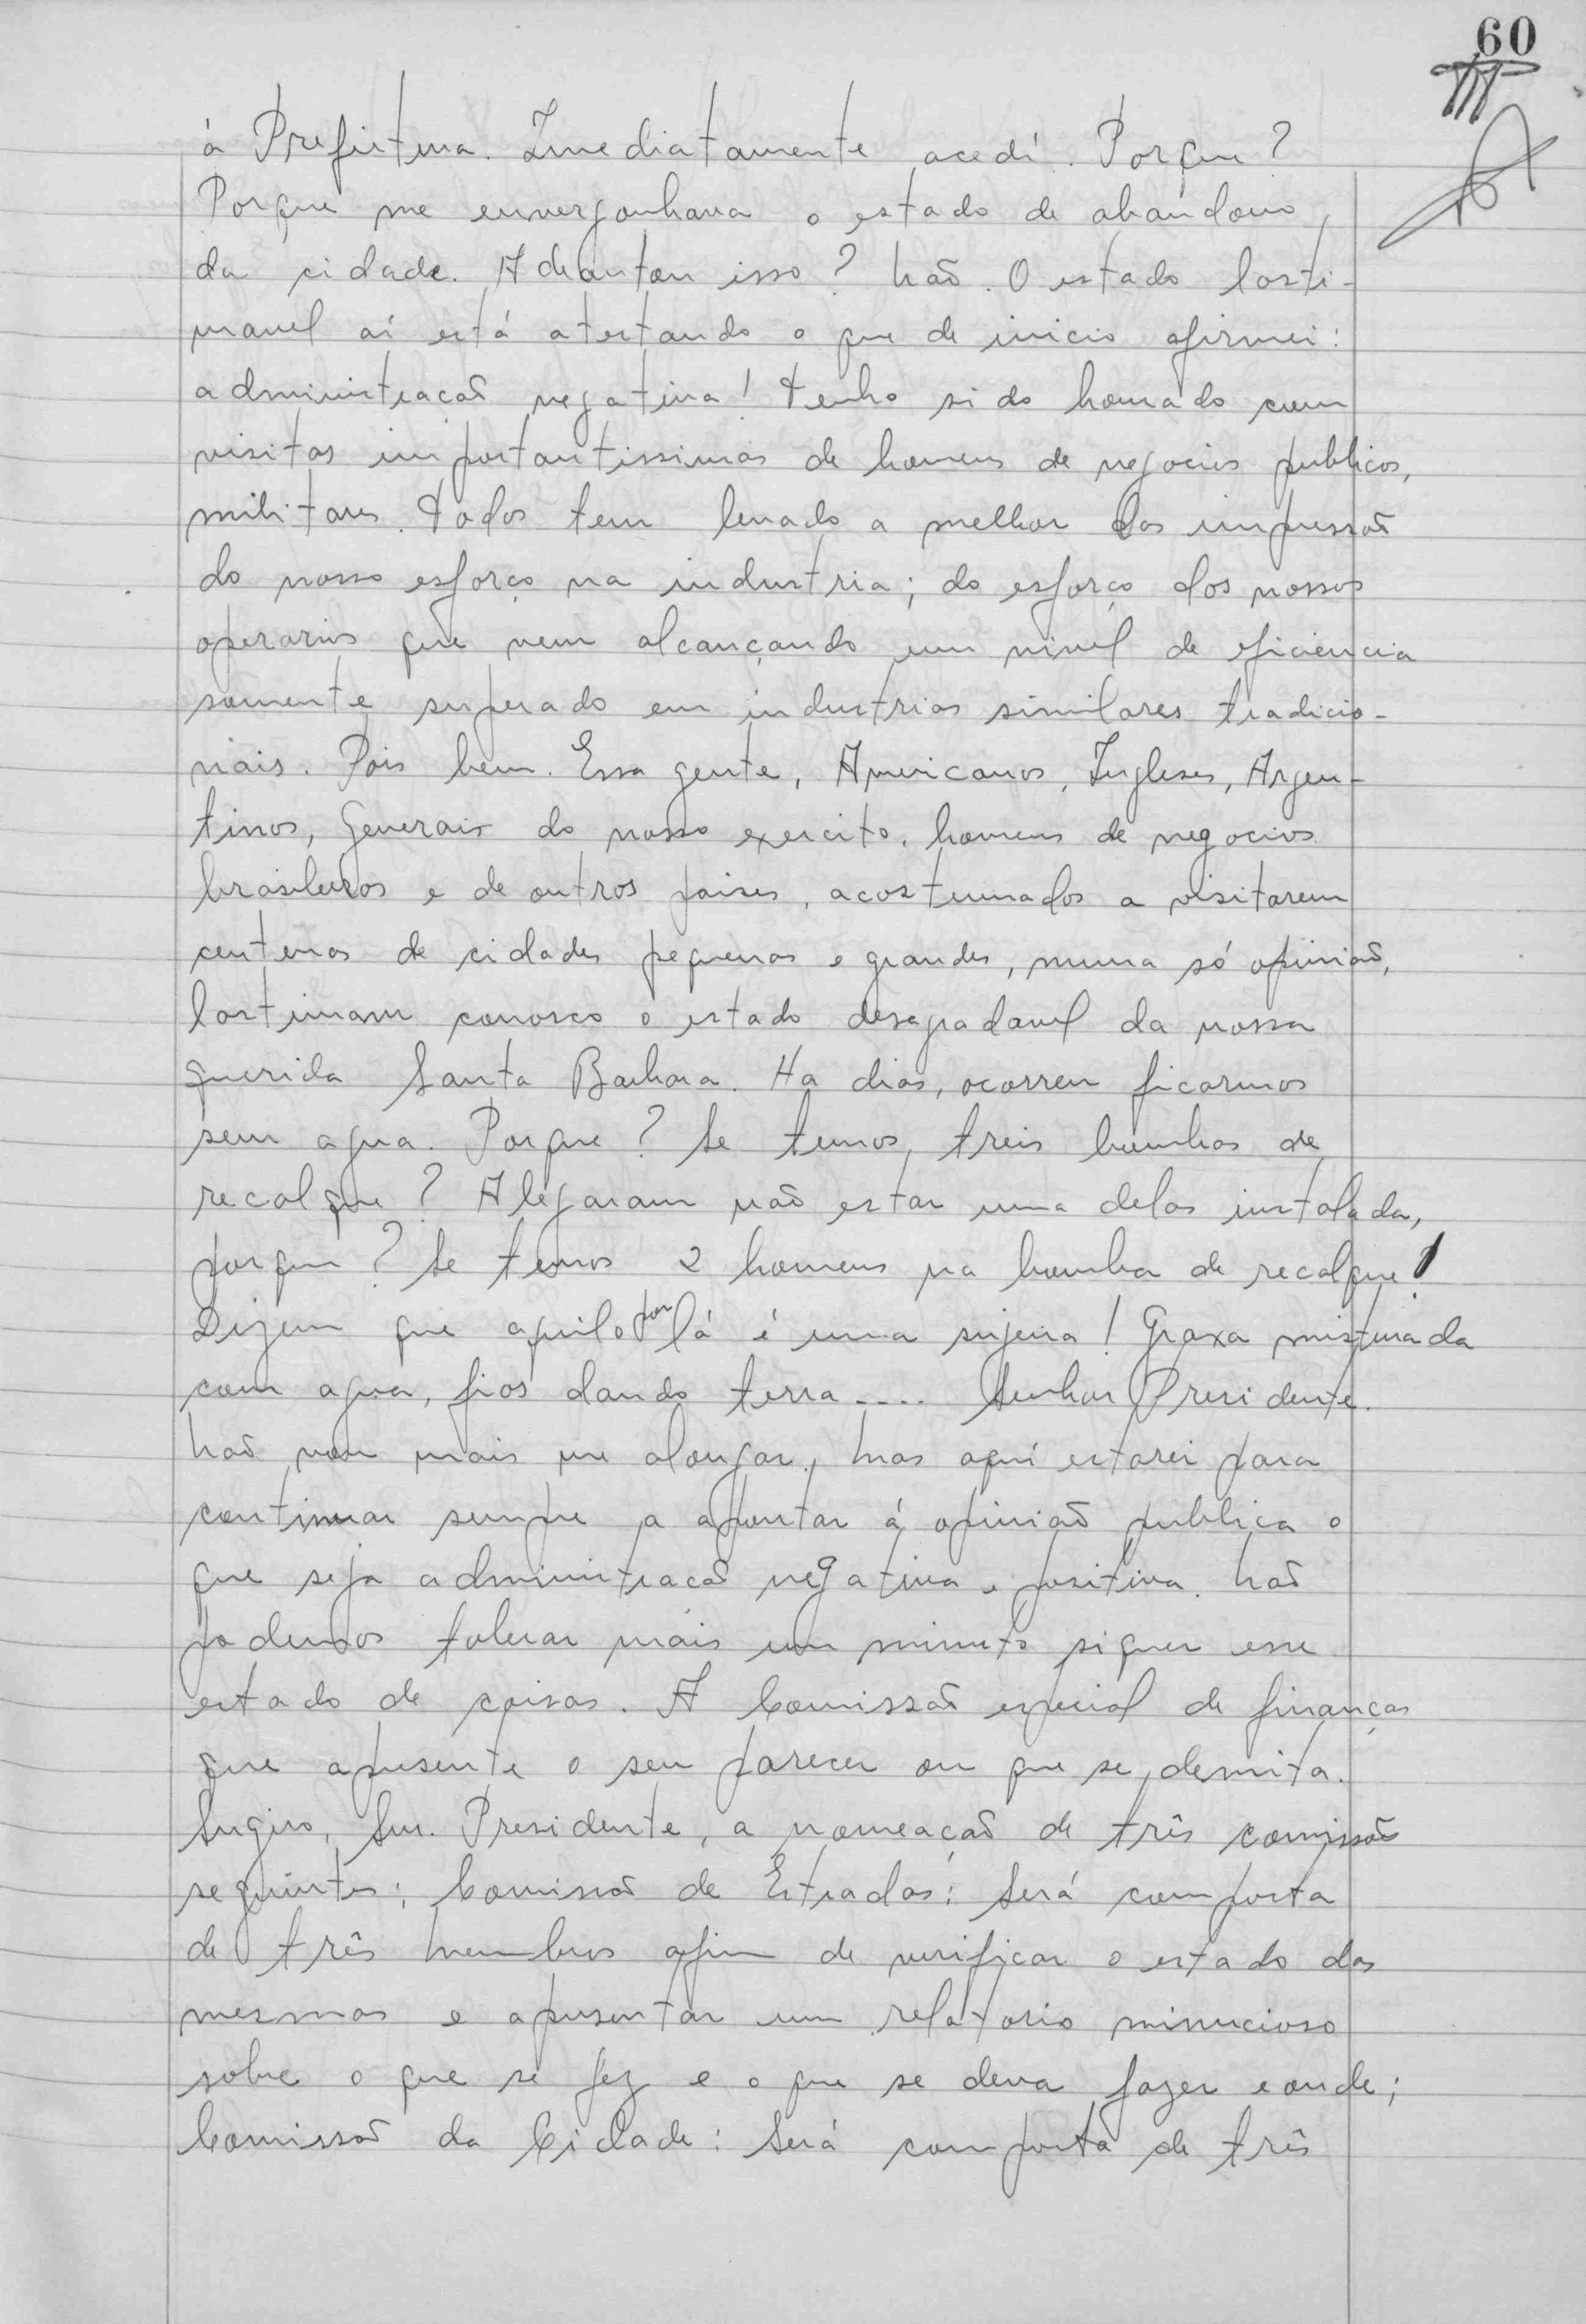 60
à Prefeitura. Imediatamente acedi. Porque?
Porque me envergonhava o estado de abandono
da cidade. Adeantou isso? Não. O estado lasti-
mavel aí está atestando o que de inicio afirmei:
administracaõ negativa! Tenho sido honrado com
visitas importantissimas de homens de negocios publicos,
militares. Todos tem levado a melhor das impressaõ
do nosso esforço na industria; do esforço dos nossos
operarios que vem alcançando um nivel de eficiencia
somente superado em industrias similares tradicio-
nais. Pois bem. Essa gente, Americanos, Ingleses, Argen-
tinos, Generais do nosso exercito, homens de negocios
brasileiros e de outros paises, acostumados a visitarem
centenas de cidades pequenas e grandes, numa só opiniaõ,
lastimam conosco o estado desagradavel da nossa
querida Santa Barbara. Ha dias, ocorreu ficarmos
sem agua. Porque? Se temos treis bombas de
recalque? Alegaram naõ estar uma delas instalada,
porque? Se temos 2 homens na bomba de recalque!
Dizem que aquilo por lá é uma sujeira! Graxa misturada
com agua, fios dando terra .... Senhor Presidente.
Naõ vou mais me alongar, mas aqui estarei para
continuar sempre a apontar á opiniaõ publica o
que seja administracaõ negativa e positiva. Naõ
podemos tolerar mais um minuto siquer esse
estado de coisas. A Comissaõ especial de finanças
que apresente o seu parecer ou que se demita.
Sugiro, Snr. Presidente, a nomeacaõ de três comissaõ
seguintes: Comissaõ de Estradas: Será composta
de três membros afim de verificar o estado das
mesmas e apresentar um relatorio minucioso
sobre o que se fez e o que se deva fazer e onde;
Comissaõ da Cidade: Será composta de três